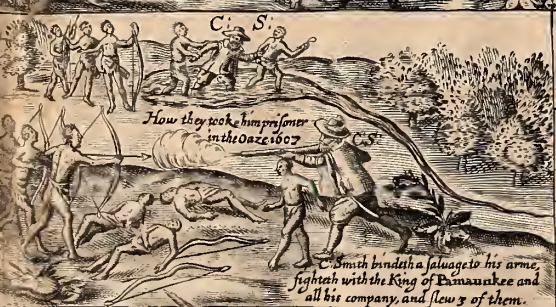 C: S:
How they tooke him priſoner
in the Oaze 1607
C.S:
C. Smith bindeth a ſaluage to his arme,
fighteth with the King of Pamaunkee and
all his company, and ſlew 3 of them.